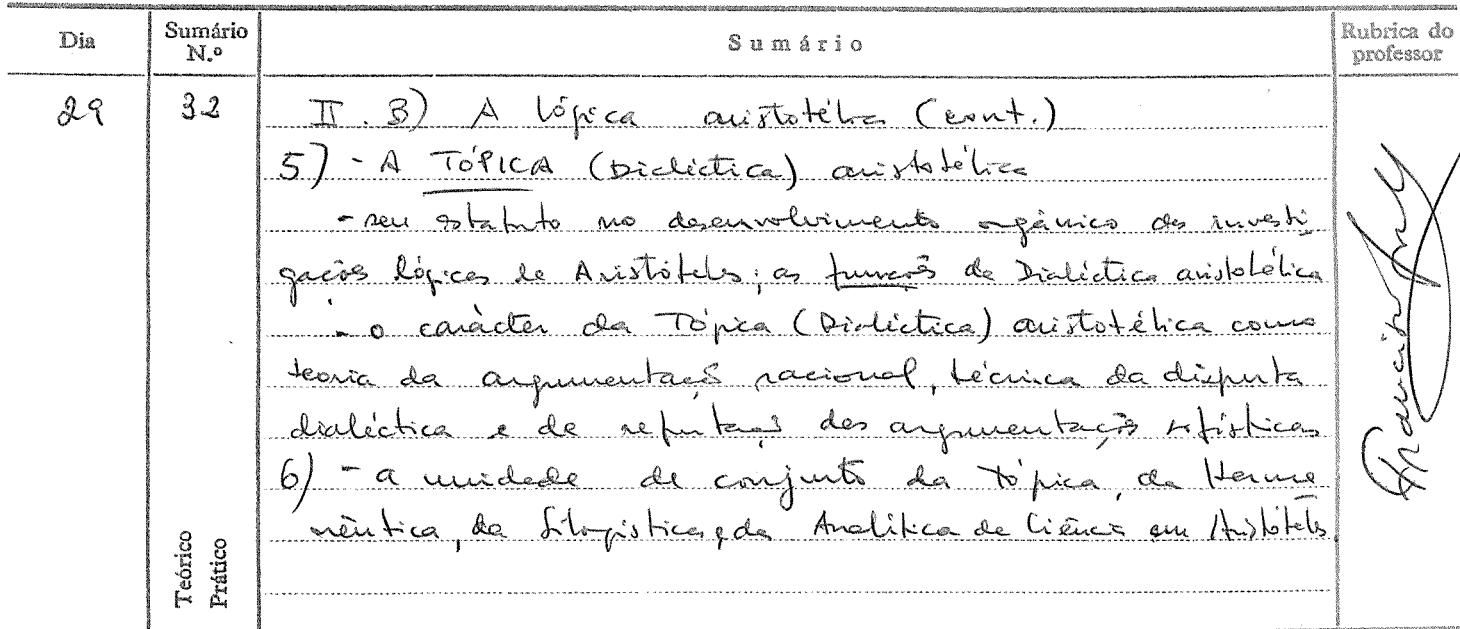 Dia
Sumário N.º
Sumário
Rubrica do professor
29
32
II. B) A lógica aristotélica (cont.)
5) - A TÓPICA (Dialéctica) aristotélica
- seu estatuto no desenvolvimento orgânico das investi
gações lógicas de Aristóteles; as funções da Dialéctica aristotélica
- o carácter da Tópica (Dialéctica) aristotélica como
teoria da argumentação racional, técnica da disputa
dialéctica e de refutação das argumentações sofísticas
6) - a unidade de conjunto da tópica, da Herme
nêutica, da Silogística, e da Analítica da Ciência em Aristóteles
Teórico
Prático
Francisco